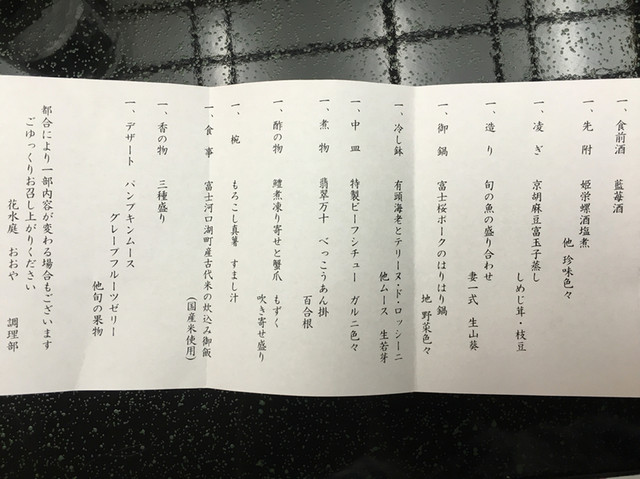 一、食前酒　藍苺酒
一、先　附　姫栄螺酒塩煮
他　珍味色々
一、凌　ぎ　京胡麻豆富玉子蒸し
しめじ茸・枝豆
一、造　り　旬の魚の盛り合わせ
妻一式　生山葵
一、御　鍋　富士桜ポークのはりはり鍋
地　野菜色々
一、冷し鉢　有頭海老とテリーヌ・ド・ロッシーニ
他ムース　生若芽
一、中　皿　特製ビーフシチュー　ガルニ色々
一、煮　物　翡翠万十　べっこうあん掛
百合根
一、酢の物　鱧煮凍り寄せと蟹爪　もずく
吹き寄せ盛り
一、　椀　もろこし真薯　すまし汁
一、食　事　富士河口湖町産古代米の炊込み御飯
(国産米使用)
一、香の物　三種盛り
一、デザート　パンプキンムース
グレープフルーツゼリー
他旬の果物
都合により一部内容が変わる場合もございます
ごゆっくりお召し上がりください
花水庭　おおや　調理部